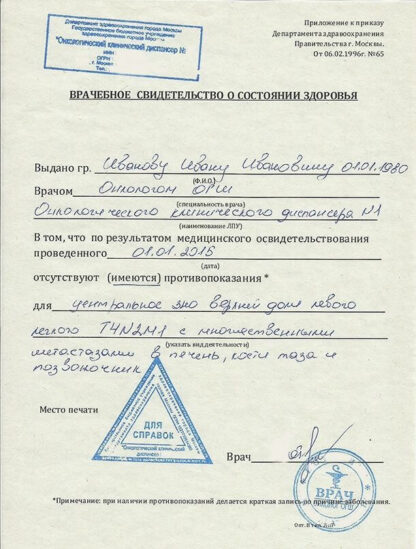 Департамент здравоохранения города Москвы
Государственное бюджетное учреждение
здравоохранения города Москвы
"Онкологический клинический диспансер №
ИНН
ОГРН
г. Москва
Тел.
Приложение к приказу
Департамента здравоохранения
Правительства г. Москвы.
От 06.02.1996г. №65
ВРАЧЕБНОЕ СВИДЕТЕЛЬСТВО О СОСТОЯНИИ ЗДОРОВЬЯ
Выдано гр. Иванову Ивану Ивановичу 01.01.1980
(Ф.И.О.)
Врачом Онкологом ОГШ
(специальность врача)
Онкологического клинического диспансера №1
(наименование ЛПУ)
В том, что по результатом медицинского освидетельствования
проведенного 01.01.2015
(дата)
отсутствуют (имеются) противопоказания *
для центральное зно верхней доли левого
легкого T4N2M1 с множественными
(указать вид деятельности)
метастазами в печень, кости таза и
позвоночник
Место печати
ДЛЯ
СПРАВОК
ОНКОЛОГИЧЕСКИЙ КЛИНИЧЕСКИЙ
ДИСПАНСЕР
Врач
ВРАЧ
ОНКОЛОГ ОГШ
*Примечание: при наличии противопоказаний делается краткая запись по причине заболевания.